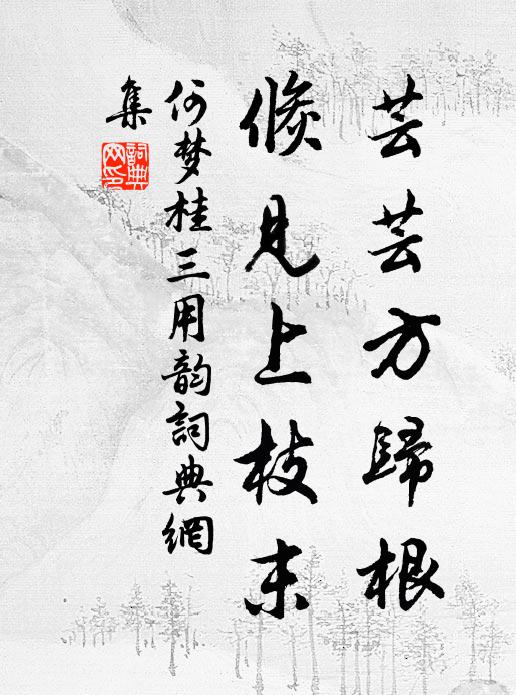 芸芸方歸根
倏見上枝末
何梦桂三用韵詞典網
集
詞典網印